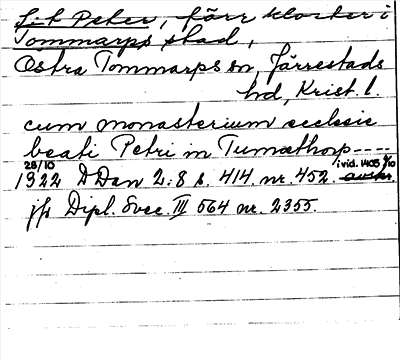 S:t Peter, förr kloster i
Tommarps stad,
Östra Tommarps sn, Järrestads
hd, Krist. l.
cum monasterium ecclesie
beati Petri in Tumathorp ----
28/10 1322 DDan 2:8 s. 414, nr. 452. i vid. 1405 /10
jfr Dipl. Svec. III 564 nr. 2355.